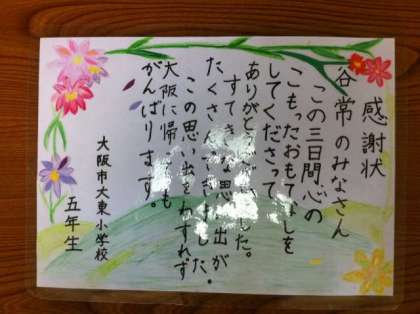 感謝状
谷常のみなさん
この三日間心の
こもったおもてなしを
してくださって、
ありがとうございました。
すてきな思い出が
たくさんできました。
この思い出をわすれず
大阪に帰っても
がんばります。
大阪市大東小学校
五年生